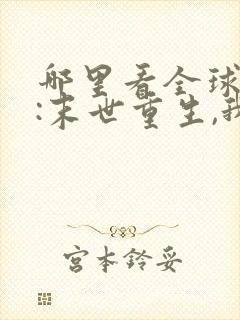 哪里看全球
:末世重生,我
宫本铃妥